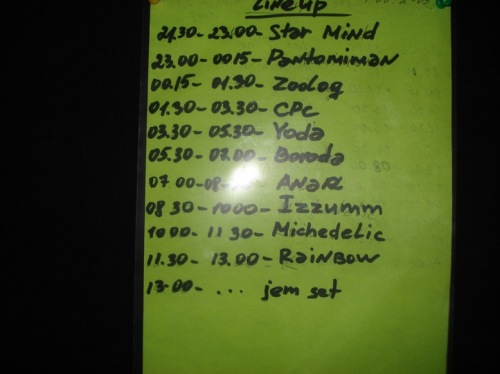 Line up
21.30-23.00- Star Mind
23.00-0015- Pantomiman
00.15- 01.30- Zoolog
01.30-03.30- CPC
03.30-05.30- Yoda
05.30-07.00- Boroda
07.00-08-
08 30-1000- Izzumm
1000- 11 30- Michedelic
11.30- 13.00- RaiNBOW
13.00- ... jem set